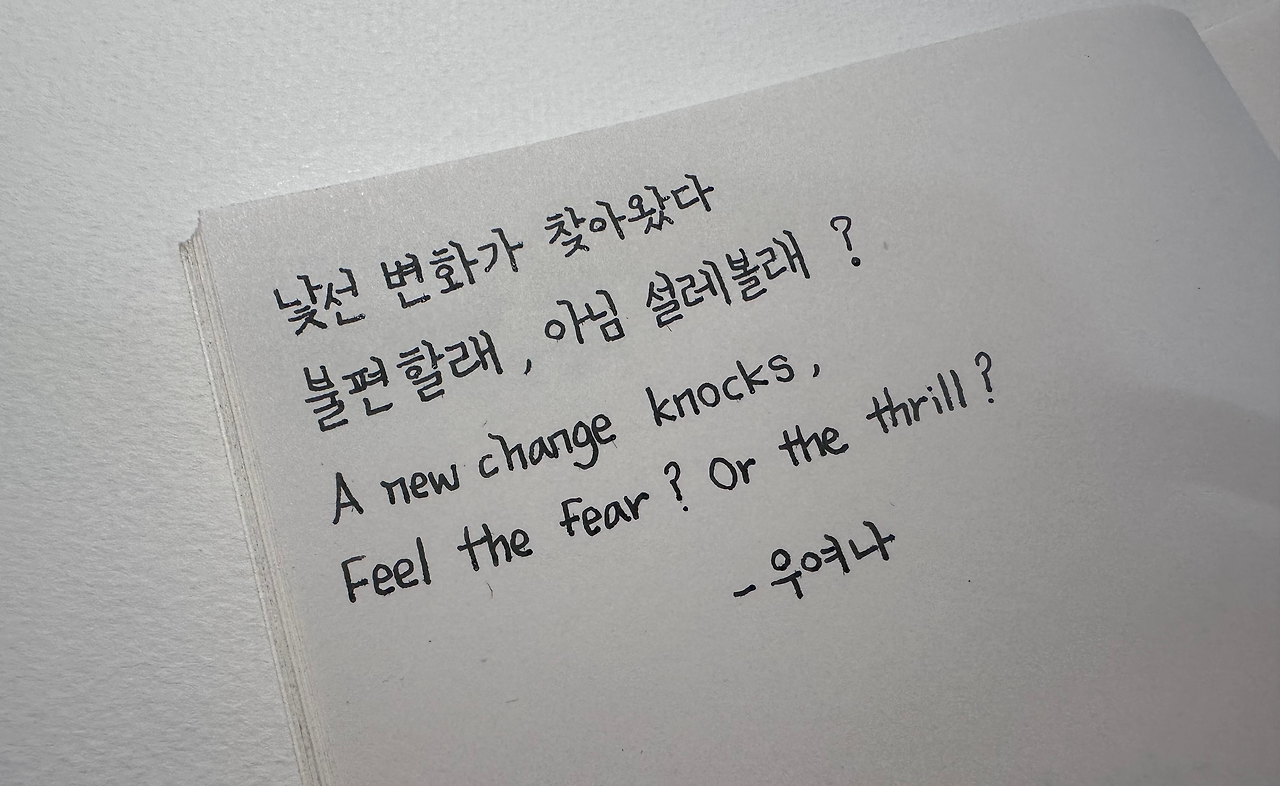 낯선 변화가 찾아왔다
불편할래, 아님 설레볼래?
A new change knocks,
Feel the fear? Or the thrill?
- 우여나